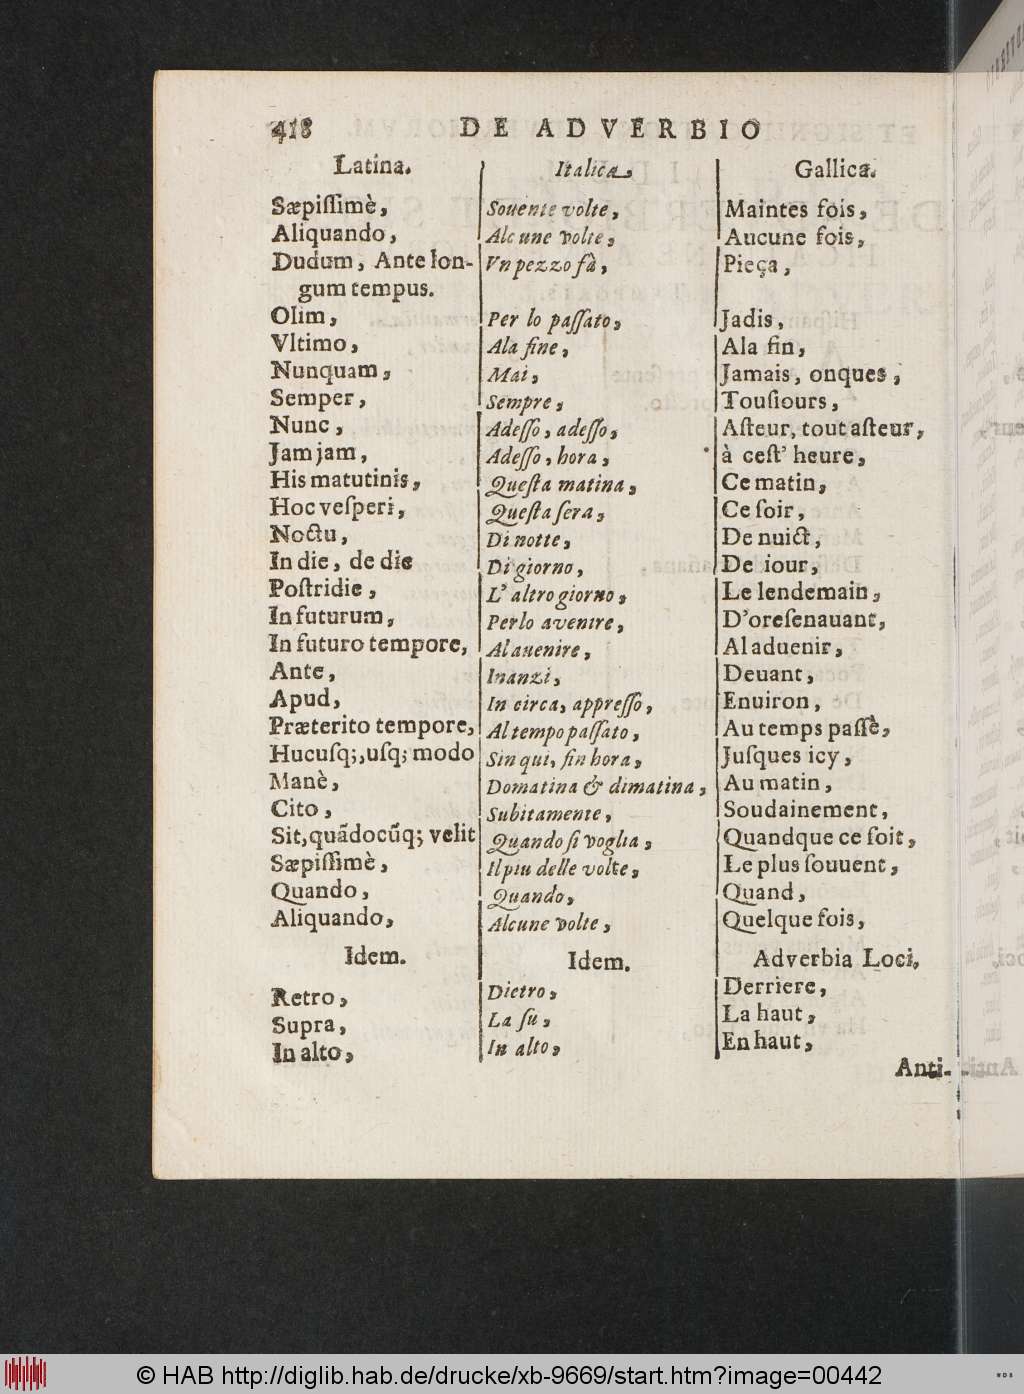 418 DE ADVERBIO
Latina. Italica, Gallica.
Sæpiſſimè, Souente volte, Maintes fois,
Aliquando, Alcune volte, Aucune fois,
Dudum, Ante lon- Vn pezzo fà, Pieça,
gum tempus.
Olim, Per lo paſſato, Jadis,
Vltimo, Ala fine, Ala fin,
Nunquam, Mai, Jamais, onques,
Semper, Sempre, Touſiours,
Nunc, Adeſſo, adeſſo, Aſteur, tout aſteur,
Jam jam, Adeſſo, hora, à ceſt' heure,
His matutinis, Queſta matina, Ce matin,
Hoc veſperi, Queſta ſera, Ce ſoir,
Noctu, Di notte, De nuict,
In die, de die Di giorno, De iour,
Poſtridie, L' altro giorno, Le lendemain,
In futurum, Perlo avenire, D'oreſenauant,
In futuro tempore, Al auenire, Al aduenir,
Ante, Inanzi, Deuant,
Apud, In circa, appreſſo, Enuiron,
Præterito tempore, Al tempo paſſato, Au temps paſſè,
Hucuſq;, uſq; modo Sin qui, ſin hora, Juſques icy,
Manè, Domatina & dimatina, Au matin,
Cito, Subitamente, Soudainement,
Sit, quãdocũq; velit Quando ſi voglia, Quandque ce ſoit,
Sæpiſſimè, Il piu delle volte, Le plus ſouuent,
Quando, Quando, Quand,
Aliquando, Alcune volte, Quelque fois,
Idem. Idem. Adverbia Loci,
Retro, Dietro, Derriere,
Supra, La ſu, La haut,
In alto, In alto, En haut,
Anti-
© HAB http://diglib.hab.de/drucke/xb-9669/start.htm?image=00442